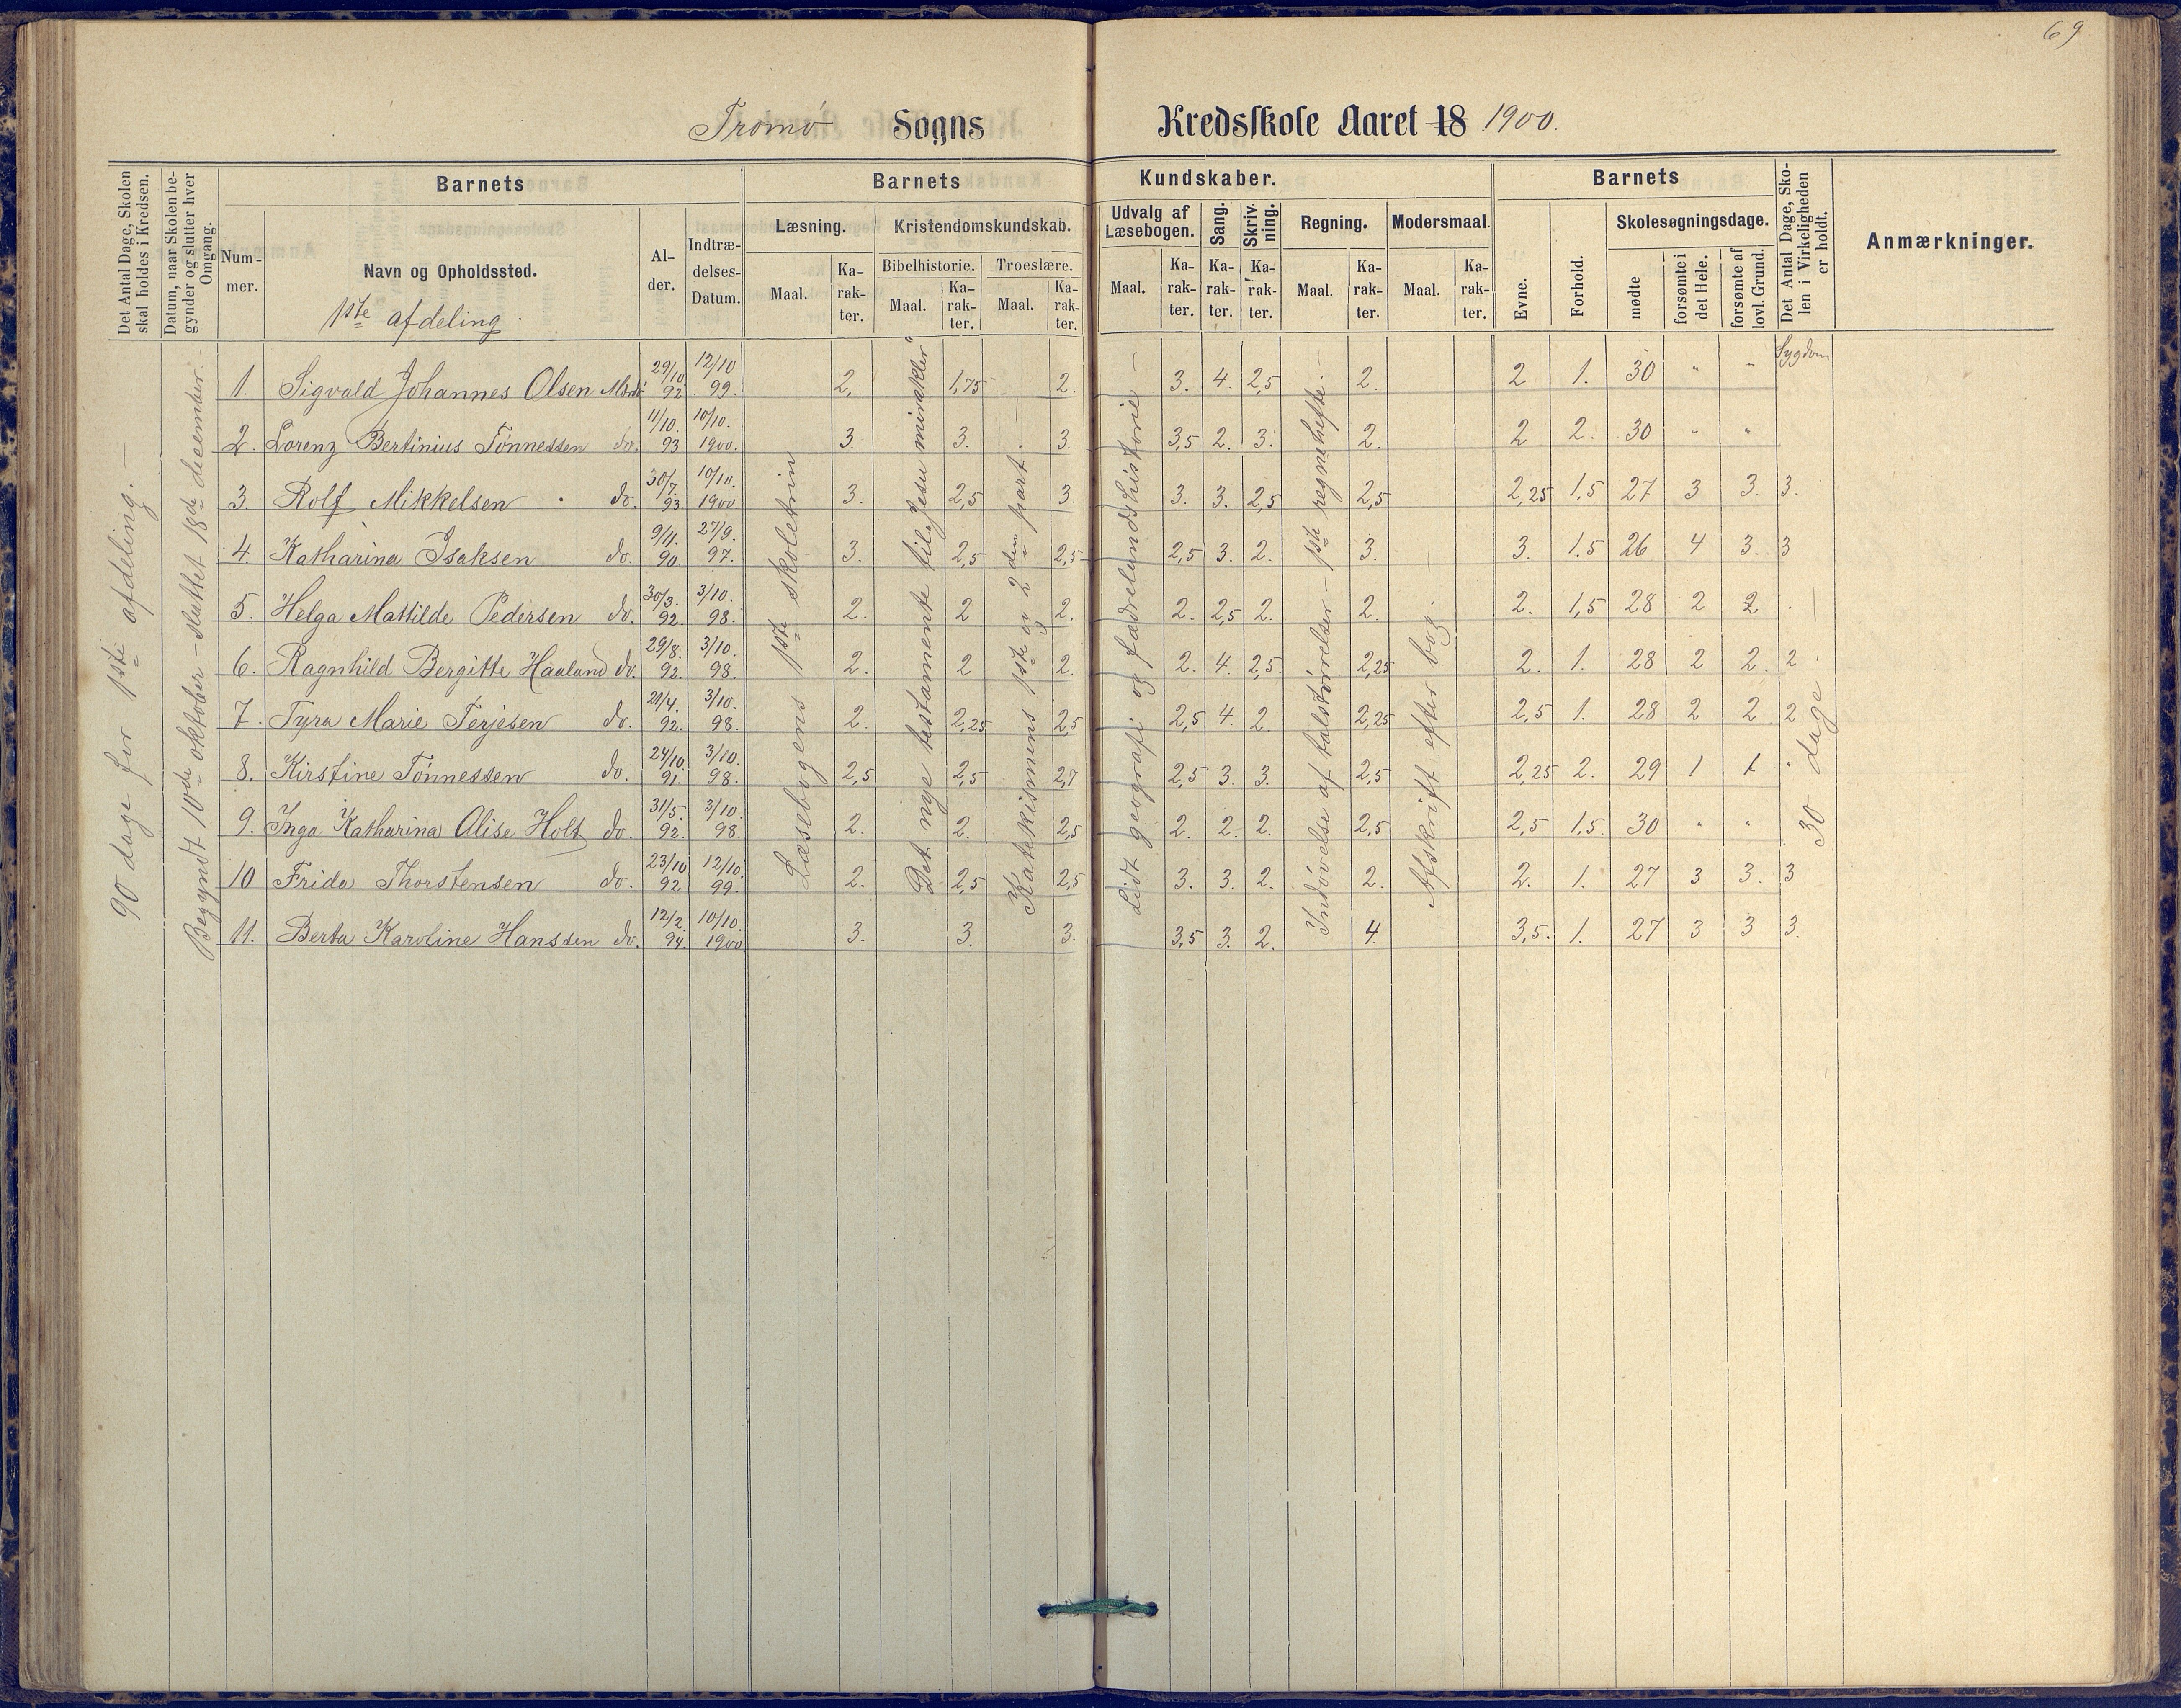 69
Tromø Sogns Kredsskole Aaret 18 1900.
Det Antal Dage, Skolen skal holdes i Kredsen.
Datum, naar Skolen begynder og slutter hver Omgang.
Barnets
Barnets
Kundskaber.
Barnets
Det Antal Dage, Skolen i Virkeligheden er holdt.
Anmærkninger.
Nummer.
Navn og Opholdssted.
1ste afdeling.
Alder.
Indtrædelses-Datum.
Læsning.
Kristendomskundskab.
Udvalg af Læsebogen.
Sang.
Skrivning.
Regning.
Modersmaal.
Evne.
Forhold.
Skolesøgningsdage.
Bibelhistorie.
Troeslære.
Maal. Karakter. Maal. Karakter. Maal. Karakter. Maal. Karakter. Karakter. Karakter. Maal. Karakter. Maal. Karakter.
mødte
forsømte i det Hele.
forsømte af lovl. Grund.
Sygdom
90 dage for 1ste afdeling. —
Begyndt 10de oktober – sluttet 18de december. –
Læsebogens 1ste skoletrin
Det nye testamente til „Jesu mirakler"
Katekismens 1ste og 2den part
Lidt geografi og fædrelandshistorie —
Indøvelse af talstørrelser – 1ste regnehefte. –
Afskrift efter bog.
30 dage. —
1. Sigvald Johannes Olsen 29/10 92 12/10 99. 2. 1,75 2. 3. 4. 2,5 2. 2 1. 30 " "
2. Lorenz Bertinius Tönnessen do. 11/10. 93 10/10. 1900. 3 3. 3. 3,5 2. 3. 2. 2 2. 30 " "
3. Rolf Mikkelsen do. 30/7. 93. 10/10. 1900. 3. 2,5 3. 3. 3. 2,5 2,5 2,25 1,5 27 3 3. 3.
4. Katharina Isaksen do. 9/11. 90 27/9. 97. 3. 2,5 2,5 2,5 3. 2. 3. 3. 1.5 26 4 3. 3
5. Helga Mathilde Pedersen do. 30/3. 92. 3/10. 98. 2. 2 2. 2. 2,5 2. 2. 2. 1,5 28 2 2 .
6. Ragnhild Bergitte Haaland do. 29/8. 92. 3/10. 98. 2. 2 2. 2. 4. 2,5. 2,25 2. 1. 28 2 2. 2
7. Tyra Marie Terjesen do. 21/4. 92. 3/10. 98. 2. 2,25 2,5 2,5 4. 2. 2,25 2,5 1. 28 2 2 2
8. Kirstine Tönnessen do. 24/10. 91. 3/10. 98. 2,5 2,5 2,7 2,5 3. 3. 2,5 2,25 2. 29 1 1
9. Inga Katharina Alise Holt do. 31/5. 92. 3/10. 98. 2. 2. 2,5 2. 2. 2. 2,5 2,5 1,5. 30 " "
10 Frida Thorstensen do. 23/10 92 12/10. 99. 2. 2,5 2,5 3. 3. 2. 2. 2. 1. 27 3 3. 3
11. Berta Karoline Hanssen do. 12/2. 94. 10/10. 1900 3. 3. 3. 3,5 3. 2. 4. 3,5. 1. 27 3 3 3.